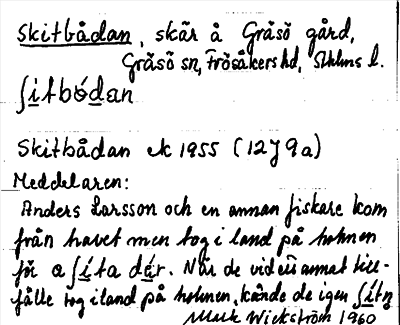 Skitbådan, skär å Gräsö gård,
Gräsö sn, Frösåkers hd, Sthlms l.
ʃitbódan
Skitbådan ek 1955 (12J9a)
Meddelaren:
Anders Larsson och en annan fiskare kom
från havet men tog i land på holmen
för a ʃita dér. När de vid ett annat till-
fälle tog i land på holmen, kände de igen ʃitn
Wickström 1960